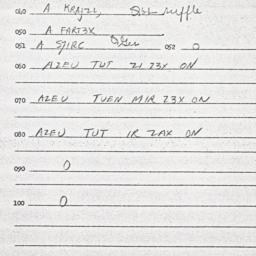 040 A KRAJZL,
050 A FART3X
051 A SJIRC 052 0
060 AZEU TUT ZI Z3X ON
070 AZEU TUEN MIR Z3X ON
080 AZEU TUT IR ZAX ON
090 0
100 0